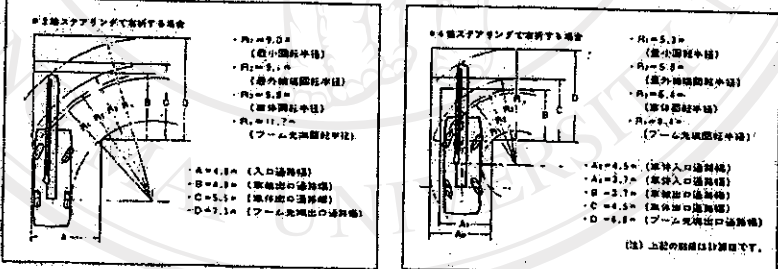 ※2輪ステアリングで右折する場合
・R₁=9.0m
(最小回転半径)
(最外輪端回転半径)
(車体回転半径)
・R₄=11.7m
(ブーム先端回転半径)
・A=4.8m (入口通路幅)
・B=4.8m (車輪出口通路幅)
・C=5.5m (車体出口通路幅)
・D=7.3m (ブーム先端出口通路幅)
A
B
C
D
※4輪ステアリングで右折する場合
・R₁=5.3m
(最小回転半径)
・R₂=5.8m
(最外輪端回転半径)
・R₃=6.4m
(車体回転半径)
(ブーム先端回転半径)
=4.5m (車体入口通路幅)
=3.7m (車体入口通路幅)
・B=3.7m (車輪出口通路幅)
・C=4.5m (車体出口通路幅)
・D=6.8m (ブーム先端出口通路幅)
B
C
D
(注) 上記の数値は計算値です。
UNIVERSITY